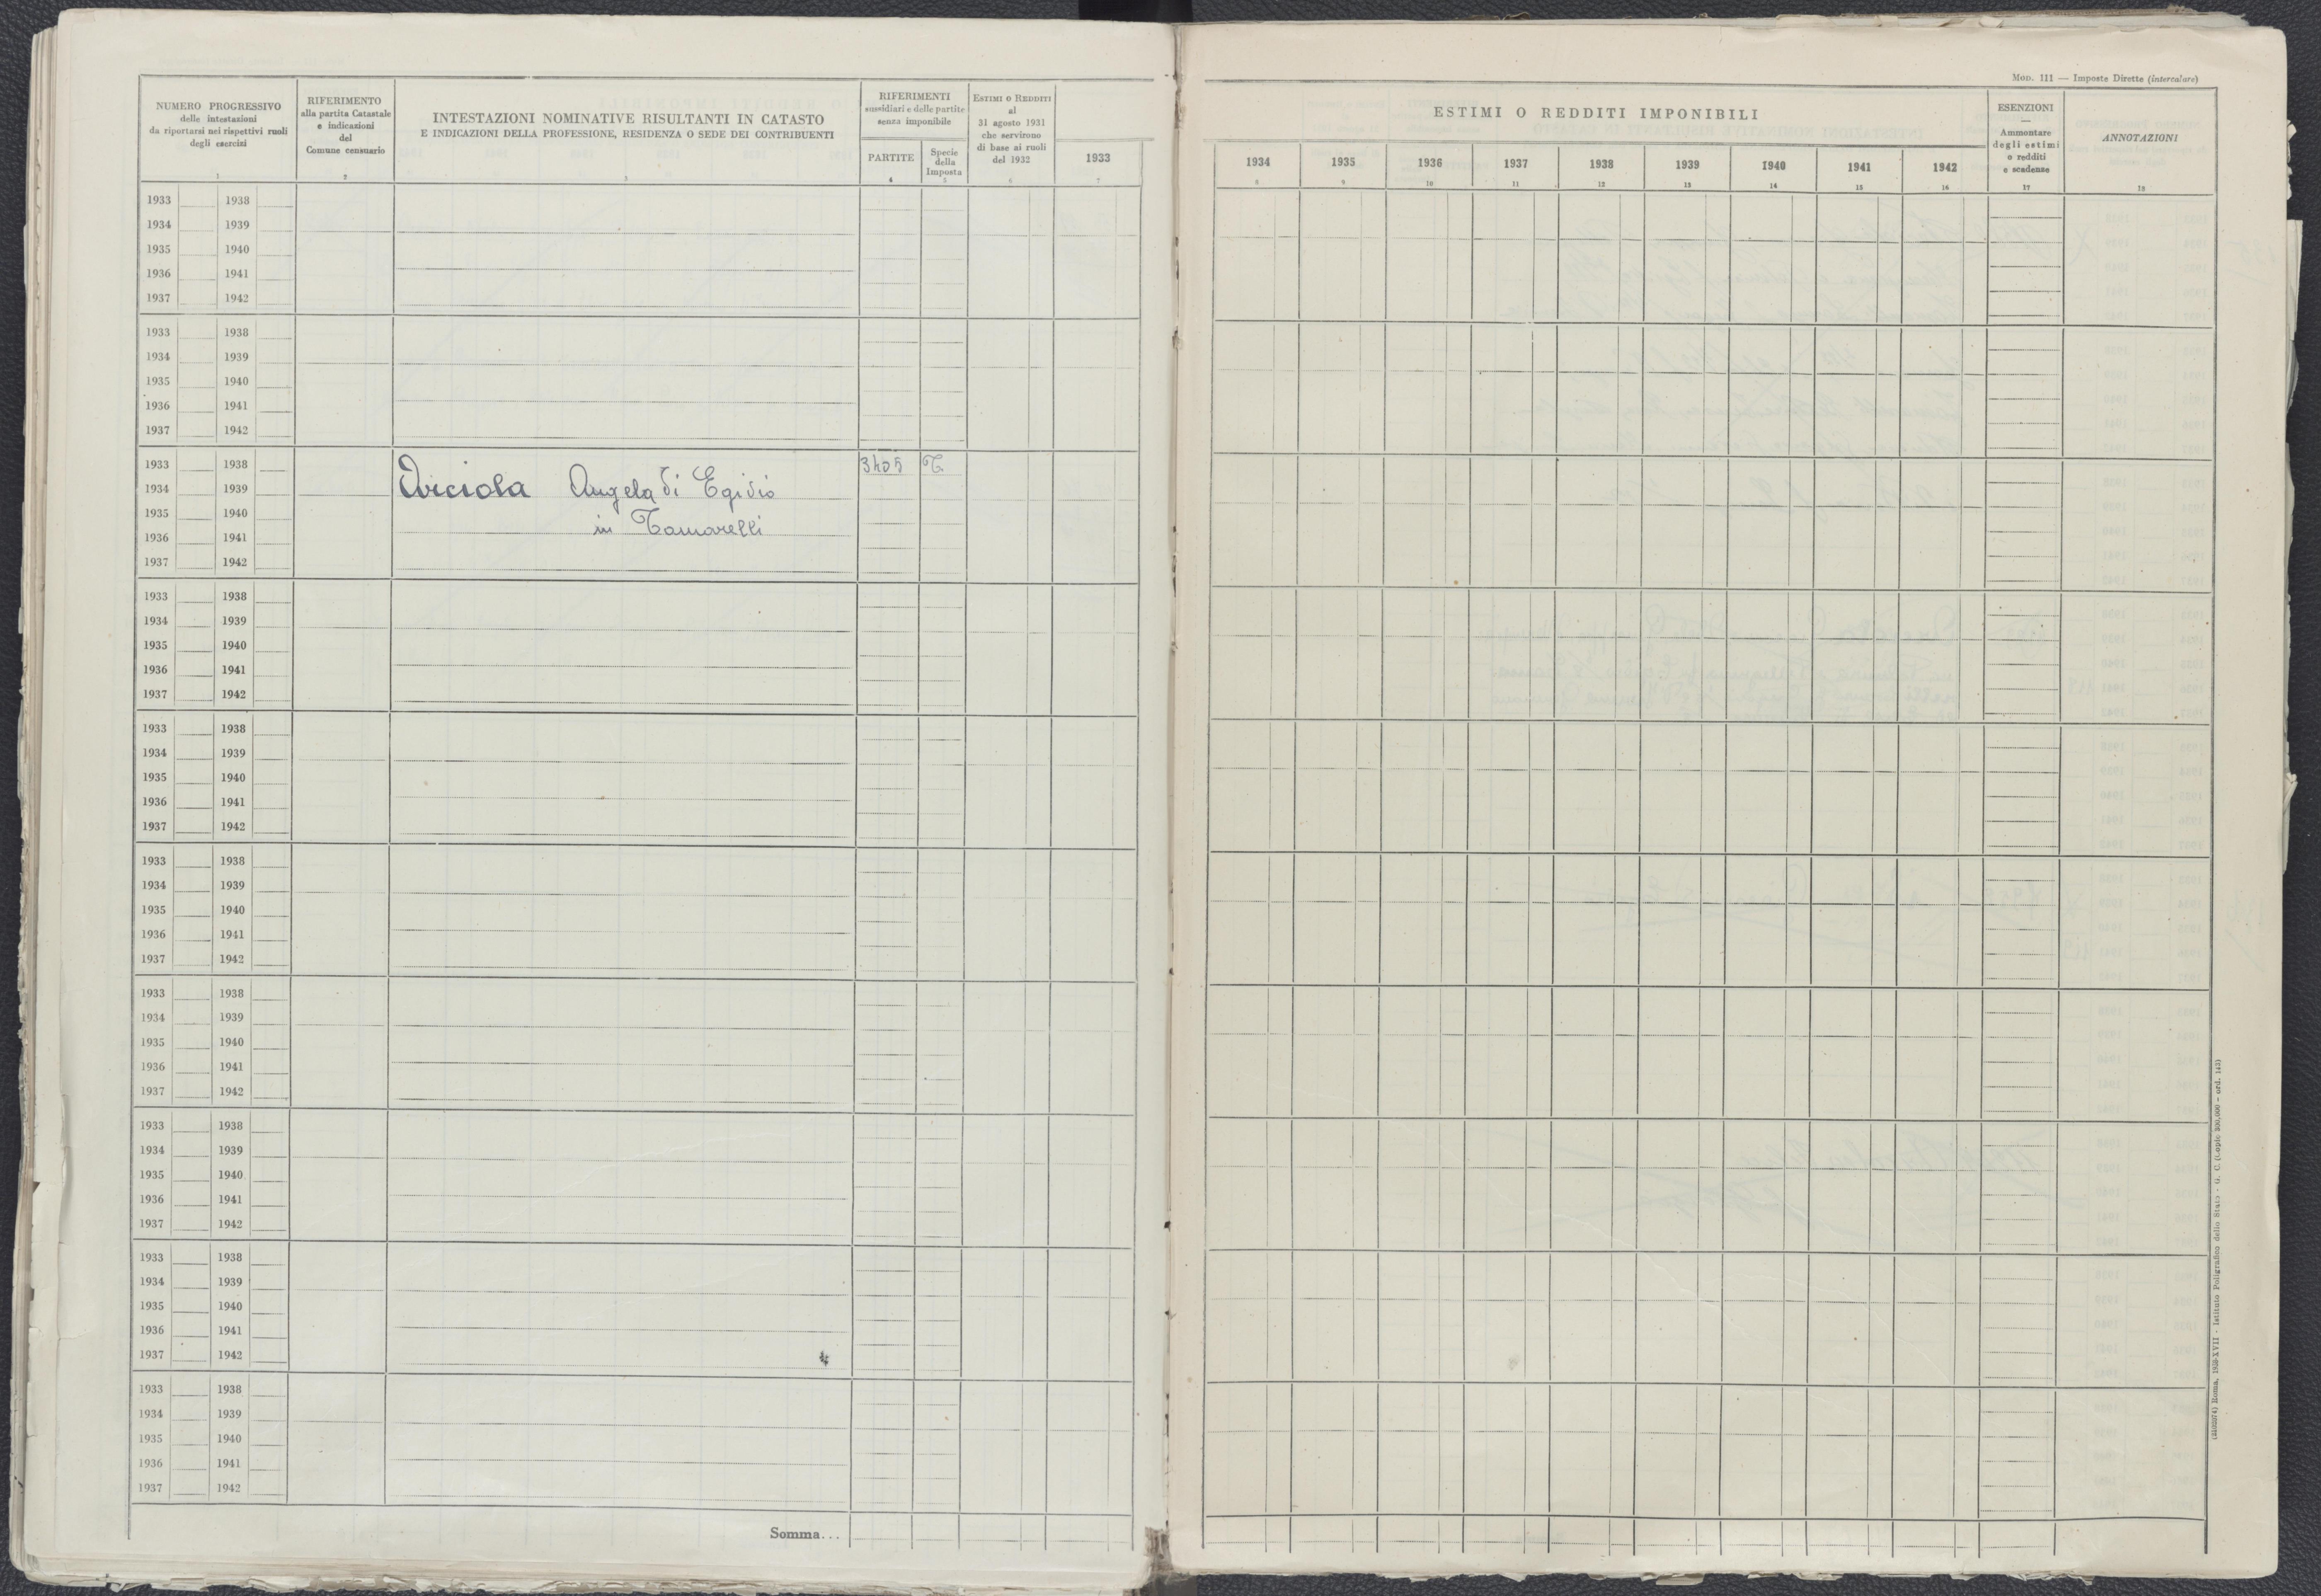 MOD. 111 — Imposte Dirette (intercalare)
NUMERO PROGRESSIVO
delle intestazioni
da riportarsi nei rispettivi ruoli
degli esercizi
1
RIFERIMENTO
alla partita Catastale
e indicazioni
del
Comune censuario
2
INTESTAZIONI NOMINATIVE RISULTANTI IN CATASTO
E INDICAZIONI DELLA PROFESSIONE, RESIDENZA O SEDE DEI CONTRIBUENTI
3
RIFERIMENTI
sussidiari e delle partite
senza imponibile
PARTITE
4
Specie
della
Imposta
5
ESTIMI O REDDITI
al
31 agosto 1931
che servirono
di base ai ruoli
del 1932
6
1933
7
ESTIMI O REDDITI IMPONIBILI
1934 1935 1936 1937 1938 1939 1940 1941 1942
8 9 10 11 12 13 14 15 16
ESENZIONI
—
Ammontare
degli estimi
o redditi
e scadenze
17
ANNOTAZIONI
18
1933 1938
1934 1939
1935 1940
1936 1941
1937 1942
1933 1938
1934 1939
1935 1940
1936 1941
1937 1942
1933 1938 3405 T.
1934 1939 Angela di Egidio
1935 1940
in Tamarelli
1936 1941
1937 1942
1933 1938
1934 1939
1935 1940
1936 1941
1937 1942
1933 1938
1934 1939
1935 1940
1936 1941
1937 1942
1933 1938
1934 1939
1935 1940
1936 1941
1937 1942
1933 1938
1934 1939
1935 1940
1936 1941
1937 1942
1933 1938
1934 1939
1935 1940
1936 1941
1937 1942
1933 1938
1934 1939
1935 1940
1936 1941
1937 1942
1933 1938
1934 1939
1935 1940
1936 1941
1937 1942
Somma...
Roma, 1938-XVII - Istituto Poligrafico dello Stato - G. C.